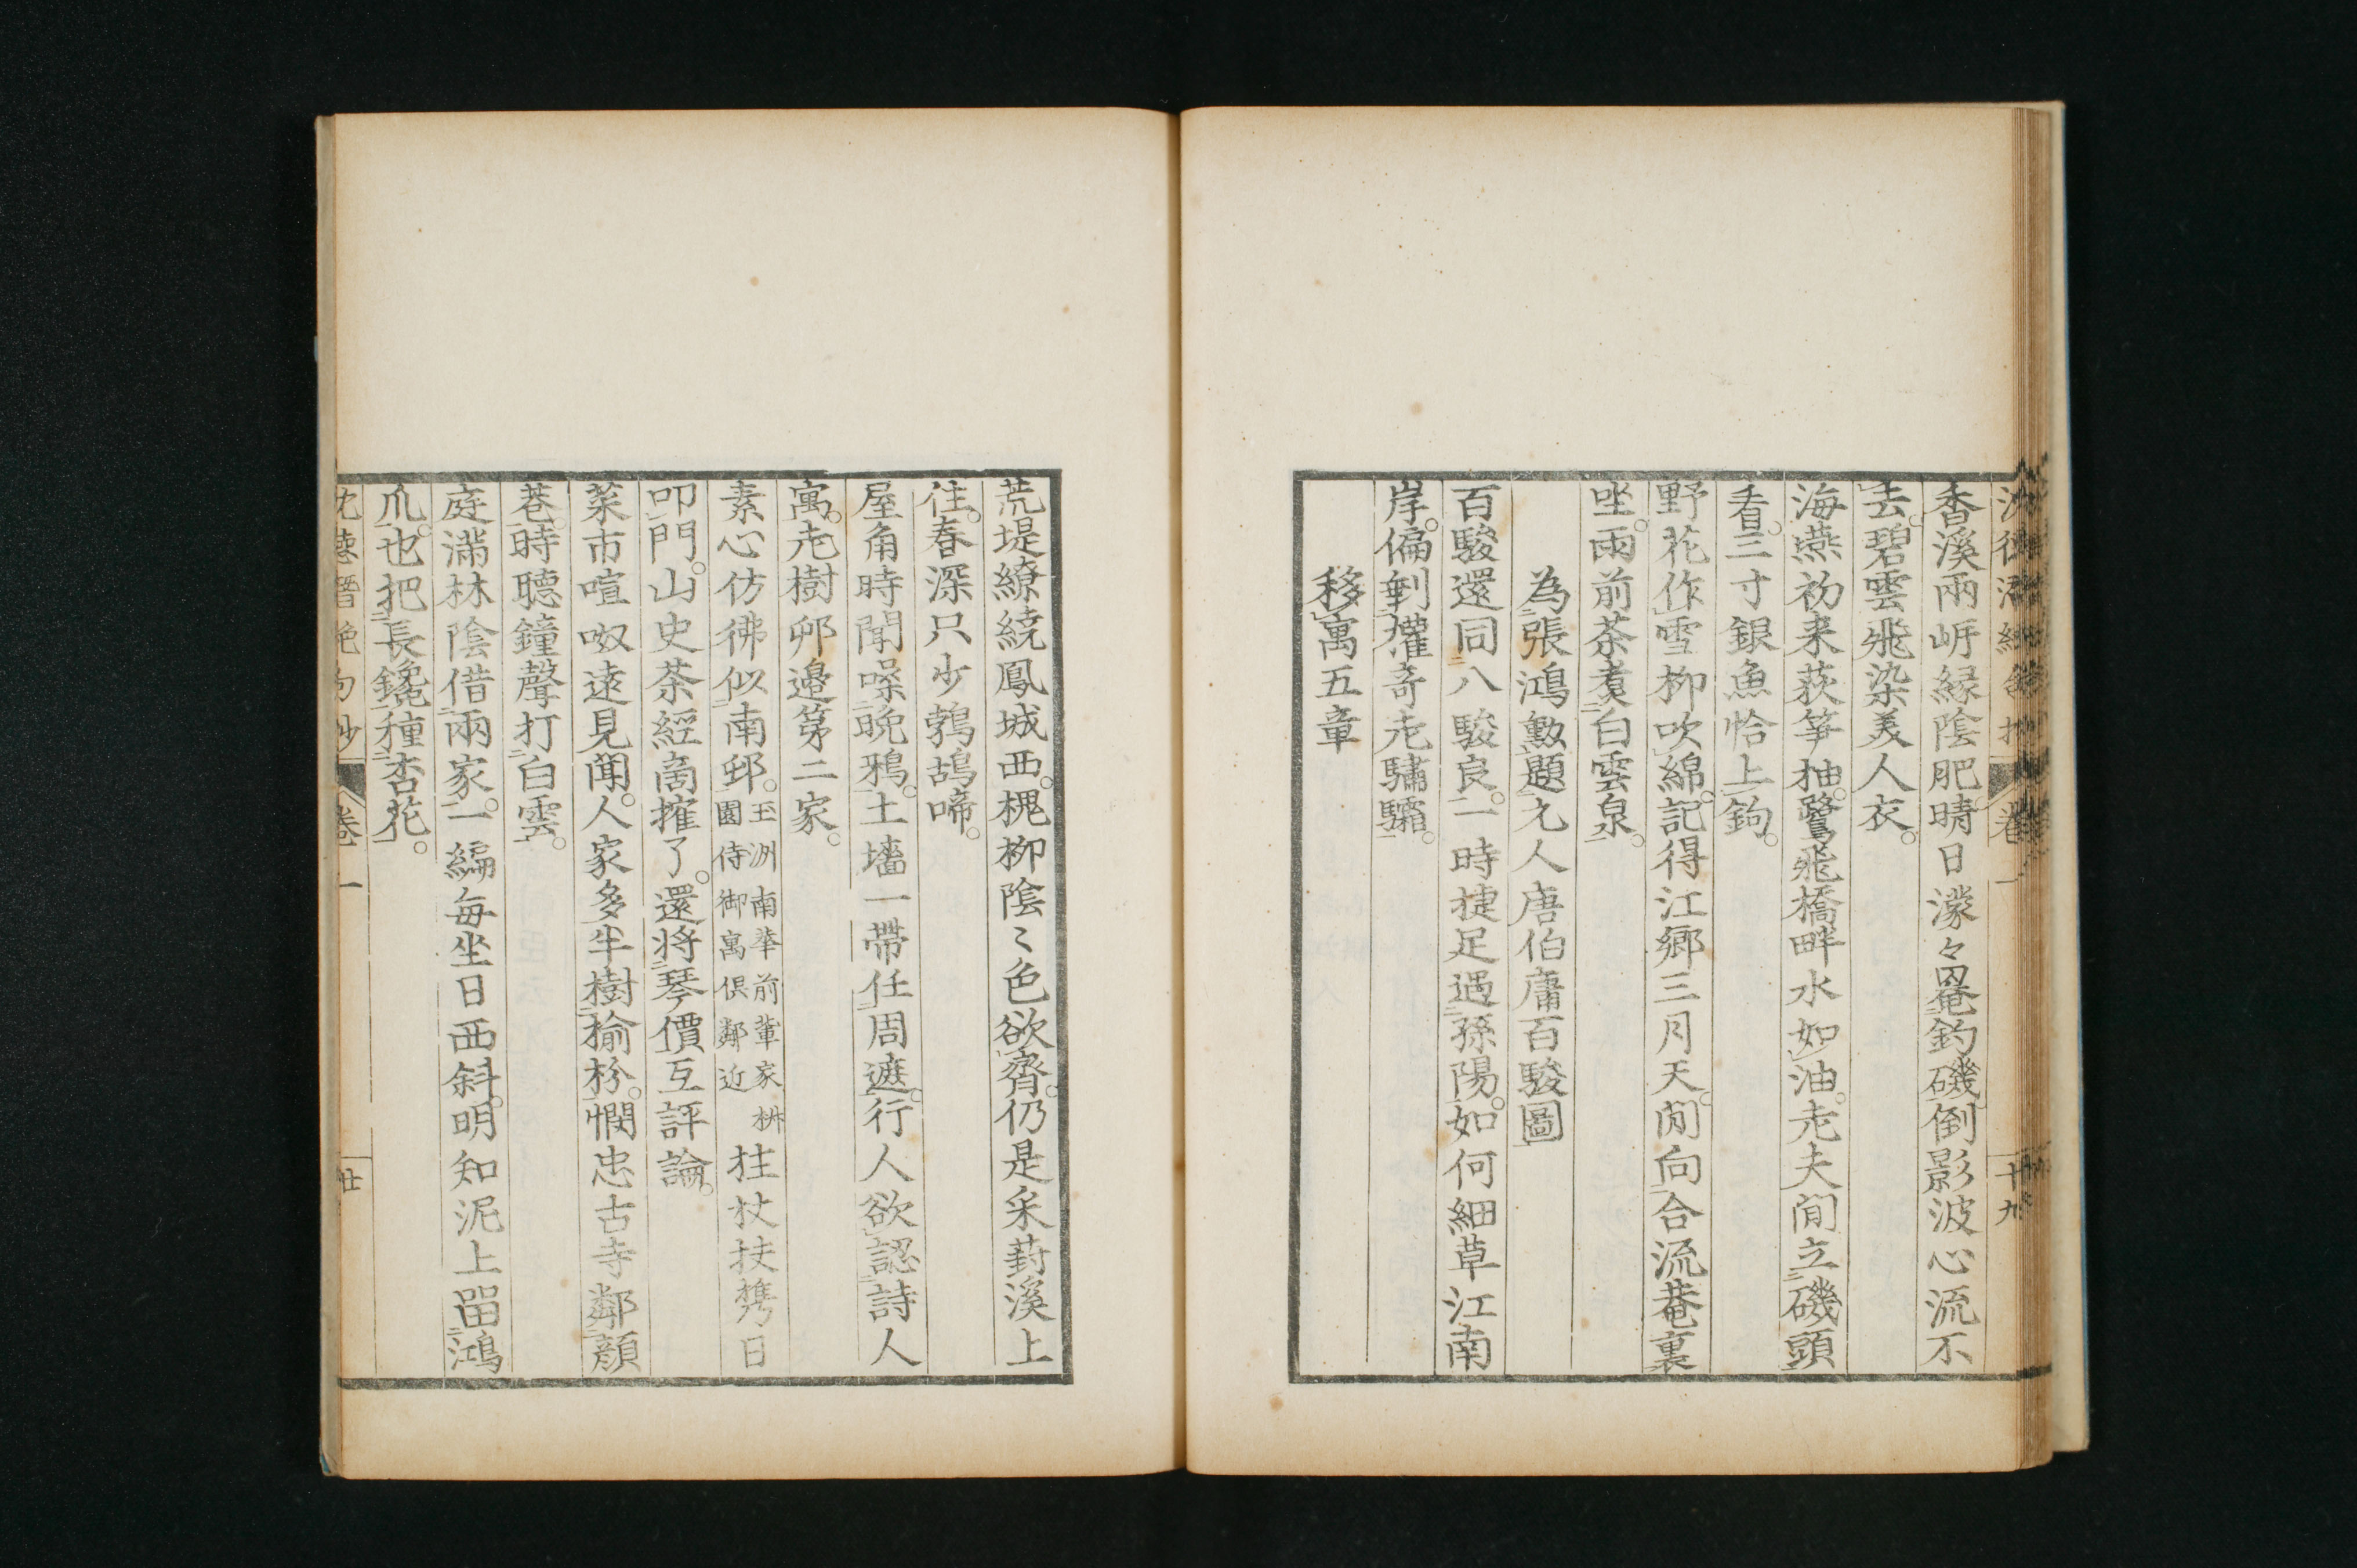 香溪兩岍緑陰肥晴日濛々罨釣磯倒影波心流不
去碧雲飛染美人衣
海燕初来荻筝抽鷺飛橋畔水如油老夫閒立磯頭
看三寸銀魚恰上鉤
野花作雪柳吹綿記得江鄉三月天閒向合流菴裏
坐雨前茶煑白雲泉
為張鴻勲題元人唐伯庸百駿圖
百駿還同八駿良一時捷足遇孫陽如何細草江南
岸偏剰㩲奇老驌驦
移寓五章
卷一
十九
荒堤繚繞鳳城西槐柳陰〻色欲齊仍是采葑溪上
住春深只少鶉鴣啼
屋角時聞噪晩鴉土墻一帶任周遮行人欲認詩人
寓老樹邜邉第二家
素心仿彿似南邨玉洲南華前輩家栟
園侍御寓俱鄰近拄杖扶攜日
叩門山史茶經商搉了還將琴價互評論
菜市喧呶遠見聞人家多半樹榆枌憫忠古寺鄰顔
巷時聴鐘聲打白雲
庭滿林陰借兩家一編每坐日西斜明知泥上畱鴻
爪也把長鑱種杏花
沈德潛絶句抄
卷一
廿